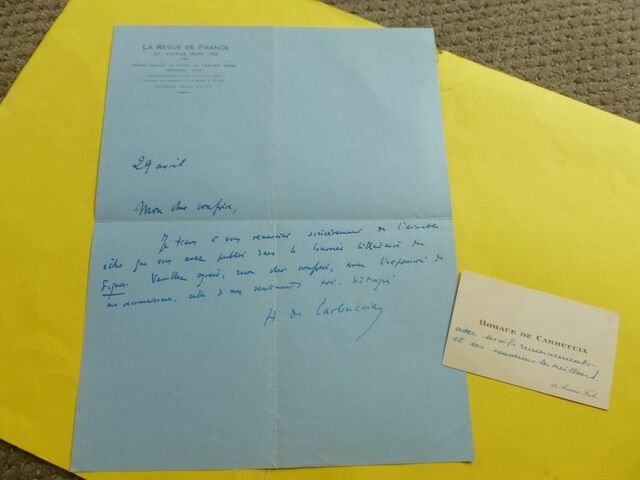 LA REVUE DE FRANCE
AVENUE RAPP
29 avril
Mon cher confrère,
Je tiens à vous remercier sincèrement de l'aimable
écho que vous avez publié dans le Courrier littéraire du
Figaro. Veuillez agréer, mon cher confrère, avec l'expression de
ma reconnaissance, celle de mes sentiments très distingués
H de Carbuccia
HORACE DE CARBUCCIA
avec ses vifs remerciements
et ses souvenirs les meilleurs.
Avenue Foch